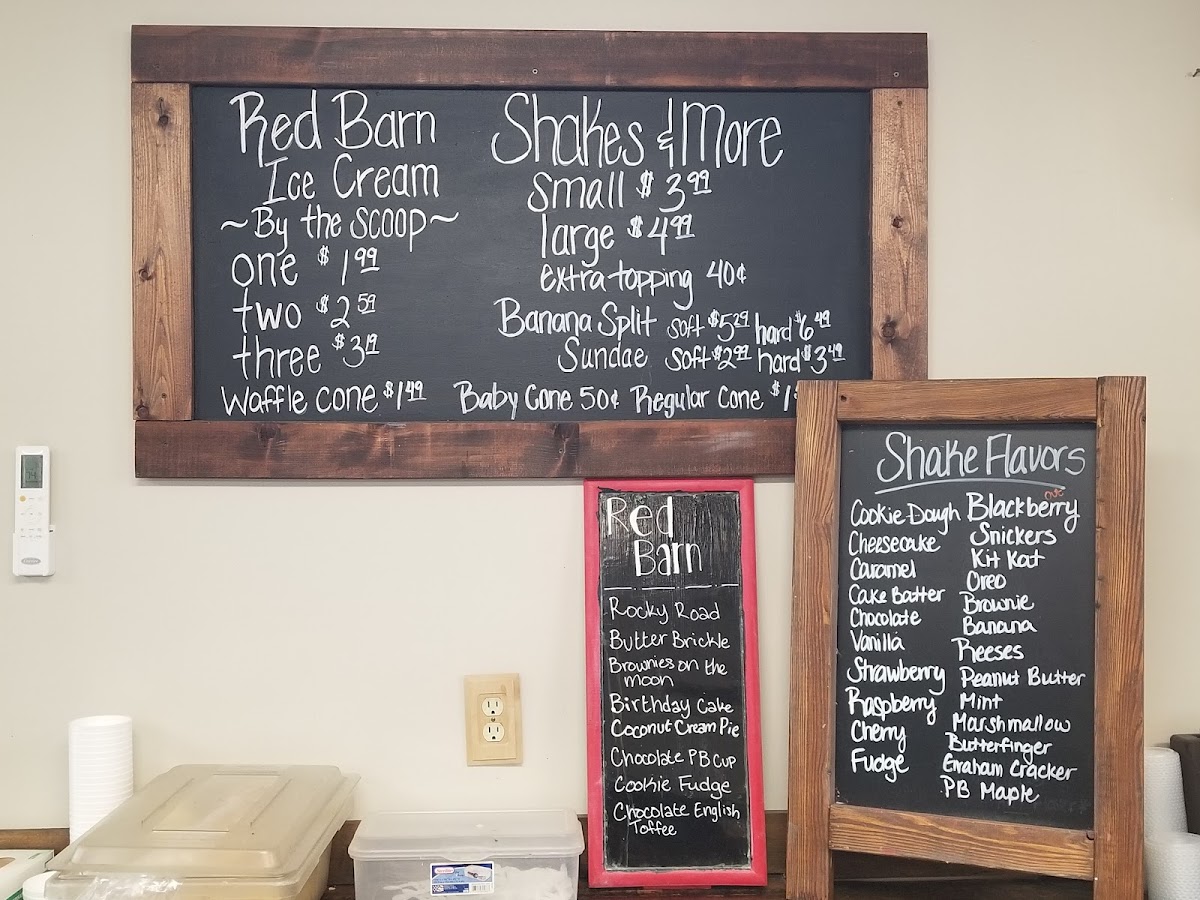 Red Barn
Ice Cream
~By the scoop~
one $1 99
two $2 59
three $3 19
Waffle cone $1 49
Shakes & More
small $3 99
large $4 99
extra topping 40¢
Banana Split soft $5 29 hard $6 49
Sundae soft $2 99 hard $3 49
Baby Cone 50¢ Regular Cone $1
Red
Barn
Rocky Road
Butter Brickle
Brownies on the
moon
Birthday Cake
Coconut Cream Pie
Chocolate PB Cup
Cookie Fudge
Chocolate English
Toffee
Shake Flavors
Cookie Dough
Cheesecake
Caramel
Cake Batter
Chocolate
Vanilla
Strawberry
Raspberry
Cherry
Fudge
out
Blackberry
Snickers
Kit Kat
Oreo
Brownie
Banana
Reeses
Peanut Butter
Mint
Marshmallow
Butterfinger
Graham Cracker
PB Maple